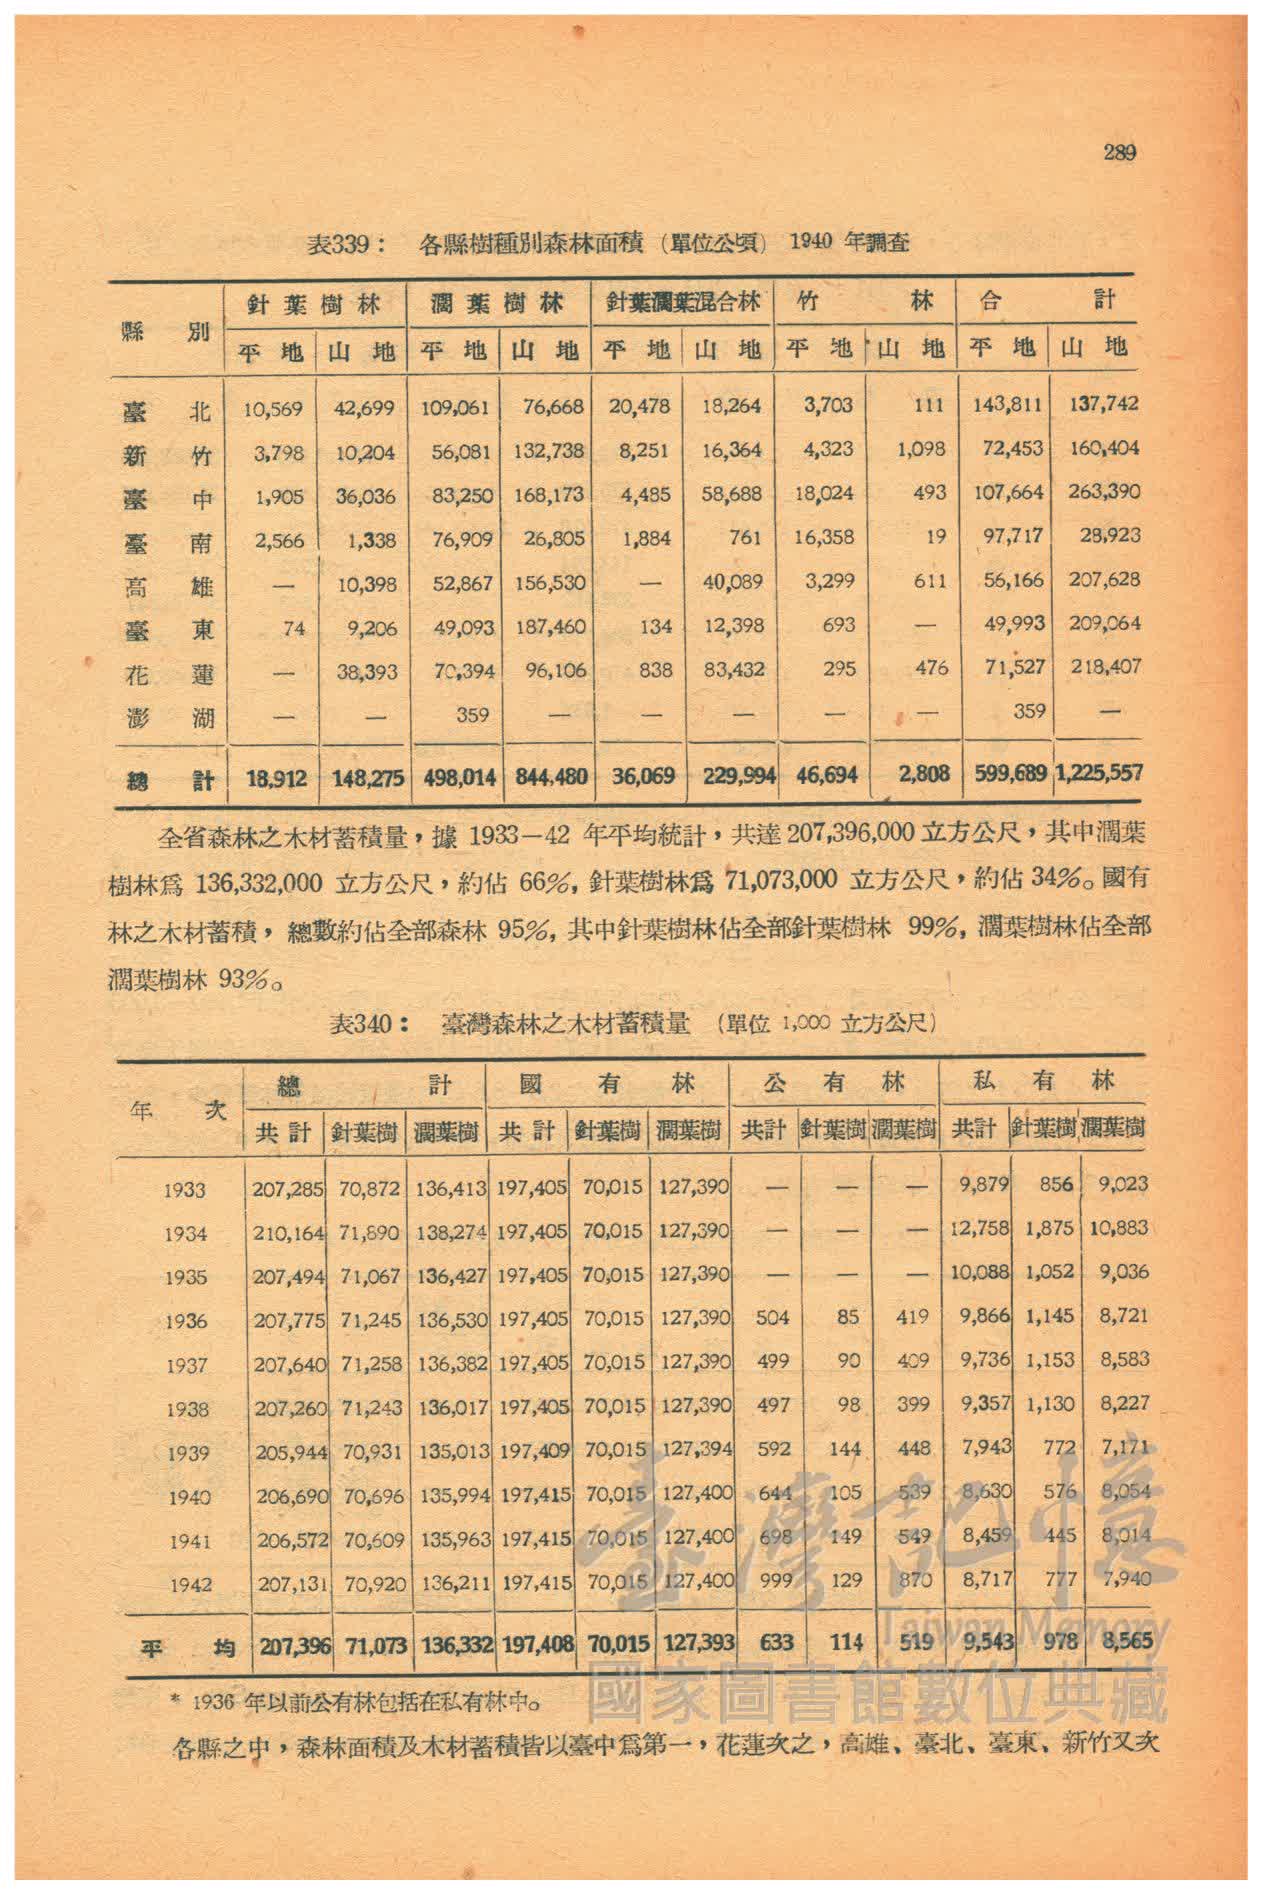 289
表339： 各縣樹種別森林面積 (單位公頃) 1940 年調查
縣 別 針葉樹林 濶葉樹林 針葉濶葉混合林 竹 林 合 計
平地 山地 平地 山地 平地 山地 平地 山地 平地 山地
臺 北 10,569 42,699 109,061 76,668 20,478 18,264 3,703 111 143,811 137,742
新 竹 3,798 10,204 56,081 132,738 8,251 16,364 4,323 1,098 72,453 160,404
臺 中 1,905 36,036 83,250 168,173 4,485 58,688 18,024 493 107,664 263,390
臺 南 2,566 1,338 76,909 26,805 1,884 761 16,358 19 97,717 28,923
高 雄 — 10,398 52,867 156,530 — 40,089 3,299 611 56,166 207,628
臺 東 74 9,206 49,093 187,460 134 12,398 693 — 49,993 209,064
花 蓮 — 38,393 70,394 96,106 838 83,432 295 476 71,527 218,407
澎 湖 — — 359 — — — — — 359 —
總 計 18,912 148,275 498,014 844,480 36,069 229,994 46,694 2,808 599,689 1,225,557
全省森林之木材蓄積量，據 1933—42 年平均統計，共達 207,396,000 立方公尺，其中濶葉
樹林爲 136,332,000 立方公尺，約佔 66%, 針葉樹林爲 71,073,000 立方公尺，約佔 34%。國有
林之木材蓄積， 總數約佔全部森林 95%, 其中針葉樹林佔全部針葉樹林 99%, 濶葉樹林佔全部
濶葉樹林 93%。
表340： 臺灣森林之木材蓄積量 (單位 1,000 立方公尺)
年 次 總 計 國有林 公有林 私有林
共計 針葉樹 濶葉樹 共計 針葉樹 濶葉樹 共計 針葉樹 濶葉樹 共計 針葉樹 濶葉樹
1933 207,285 70,872 136,413 197,405 70,015 127,390 — — — 9,879 856 9,023
1934 210,164 71,890 138,274 197,405 70,015 127,390 — — — 12,758 1,875 10,883
1935 207,494 71,067 136,427 197,405 70,015 127,390 — — — 10,088 1,052 9,036
1936 207,775 71,245 136,530 197,405 70,015 127,390 504 85 419 9,866 1,145 8,721
1937 207,640 71,258 136,382 197,405 70,015 127,390 499 90 409 9,736 1,153 8,583
1938 207,260 71,243 136,017 197,405 70,015 127,390 497 98 399 9,357 1,130 8,227
1939 205,944 70,931 135,013 197,409 70,015 127,394 592 144 448 7,943 772 7,171
1940 206,690 70,696 135,994 197,415 70,015 127,400 644 105 539 8,630 576 8,054
1941 206,572 70,609 135,963 197,415 70,015 127,400 698 149 549 8,459 445 8,014
1942 207,131 70,920 136,211 197,415 70,015 127,400 999 129 870 8,717 777 7,940
平 均 207,396 71,073 136,332 197,408 70,015 127,393 633 114 519 9,543 978 8,565
* 1936 年以前公有林包括在私有林中。
各縣之中，森林面積及木材蓄積皆以臺中爲第一，花蓮次之，高雄、臺北、臺東、新竹又次
臺灣記憶
Taiwan Memory
國家圖書館數位典藏